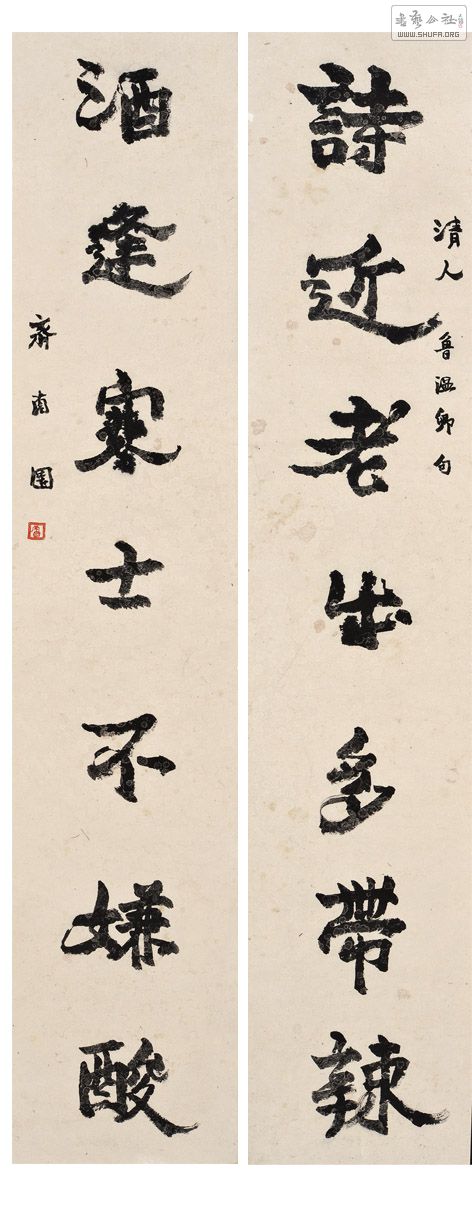 書藝公社
WWW.SHUFA.ORG
清人 魯温卿句
詩近老多帶辣
酒逢寒士不嫌酸